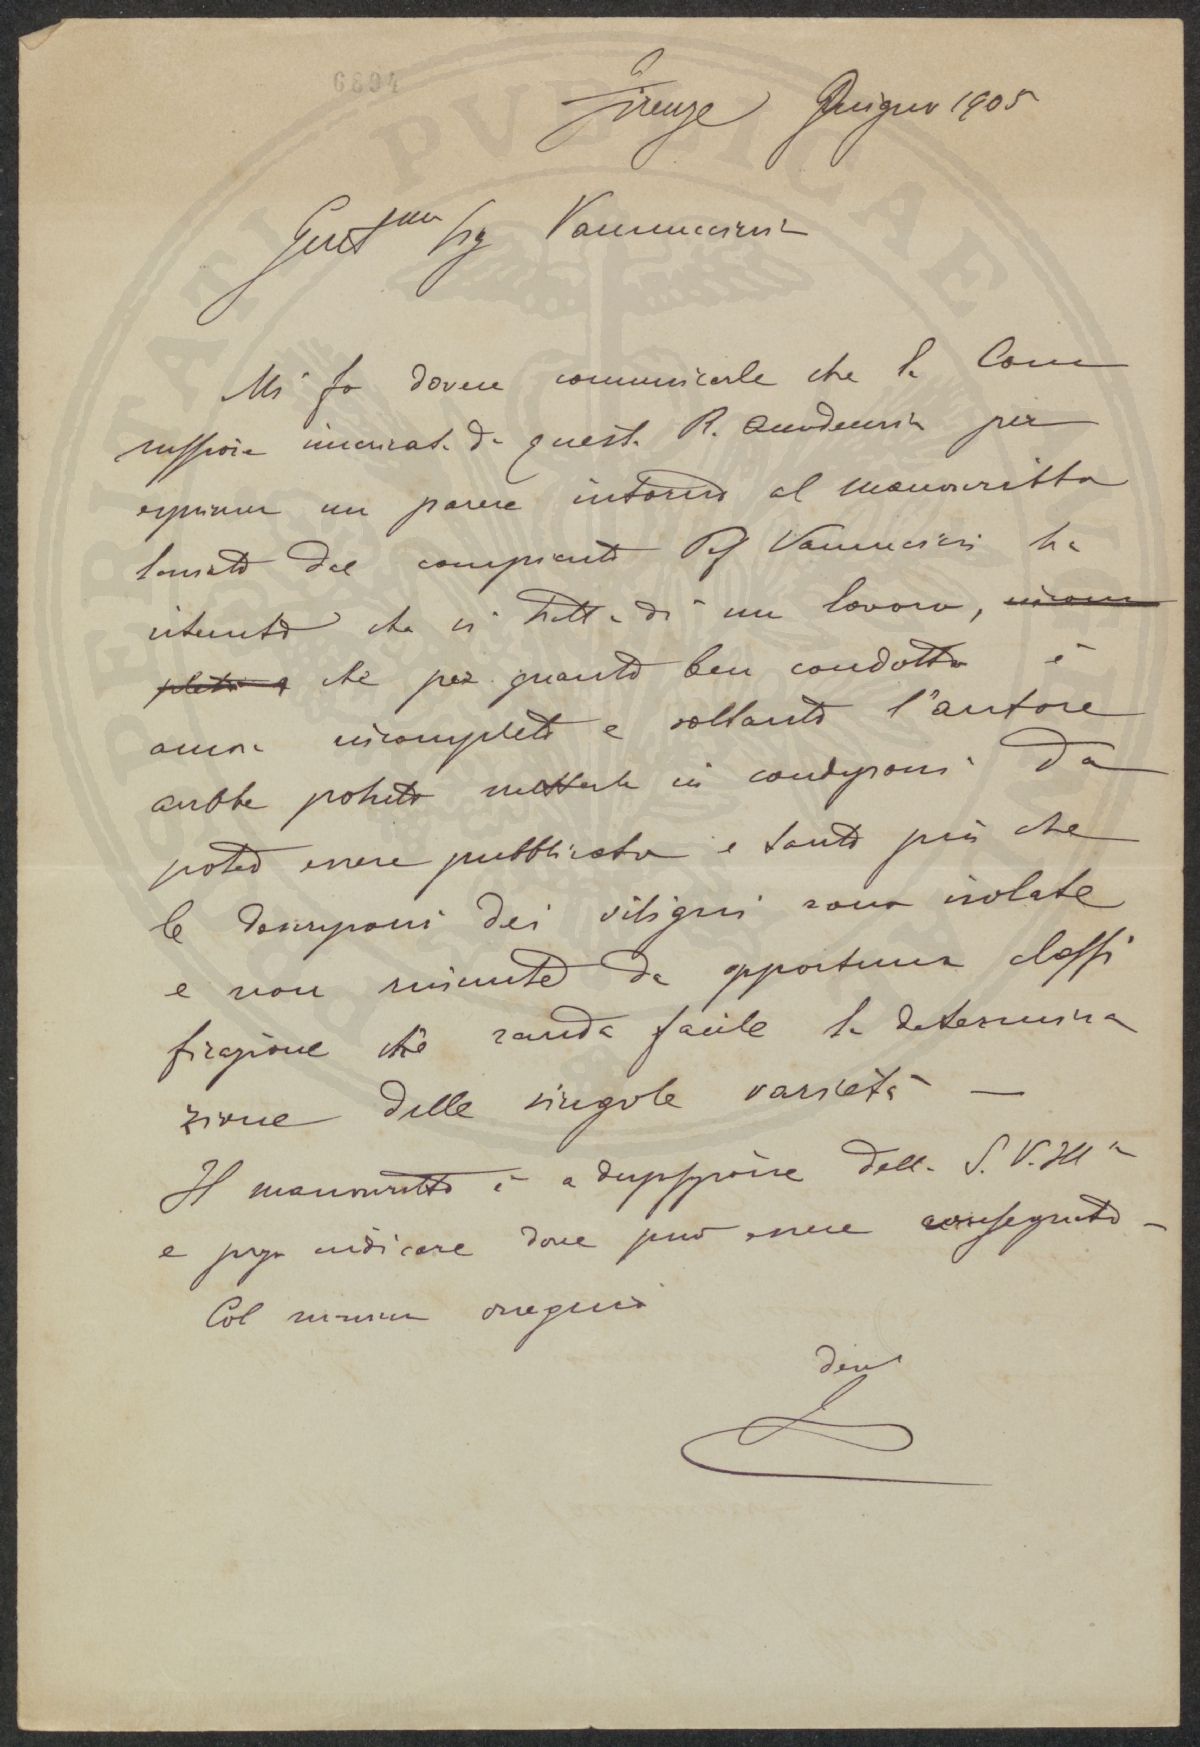 6894
Firenze Giugno 1905
Gent.mo Sig Vannuccini
Mi fo dovere comunicarle che la Com
missione incaricata da questa R. Accademia per
esprimere un parere intorno al manoscritto
lasciato dal compianto Prof Vannuccini ha
ritenuto che si tratta di un lavoro, incom
pleto che per quanto ben condotto è
ancora incompleto e soltanto l'autore
avrebbe potuto metterlo in condizioni da
poter essere pubblicato e tanto più che
le descrizioni dei vitigni sono isolate
e non riunite da opportuna classi
ficazione che renda facile la determina
zione delle singole varietà —
Il manoscritto è a disposizione della S. V. Ill.a
e prego indicare dove può essere consegnato —
Col massimo ossequio
dev
PERITATI PVBLICAE